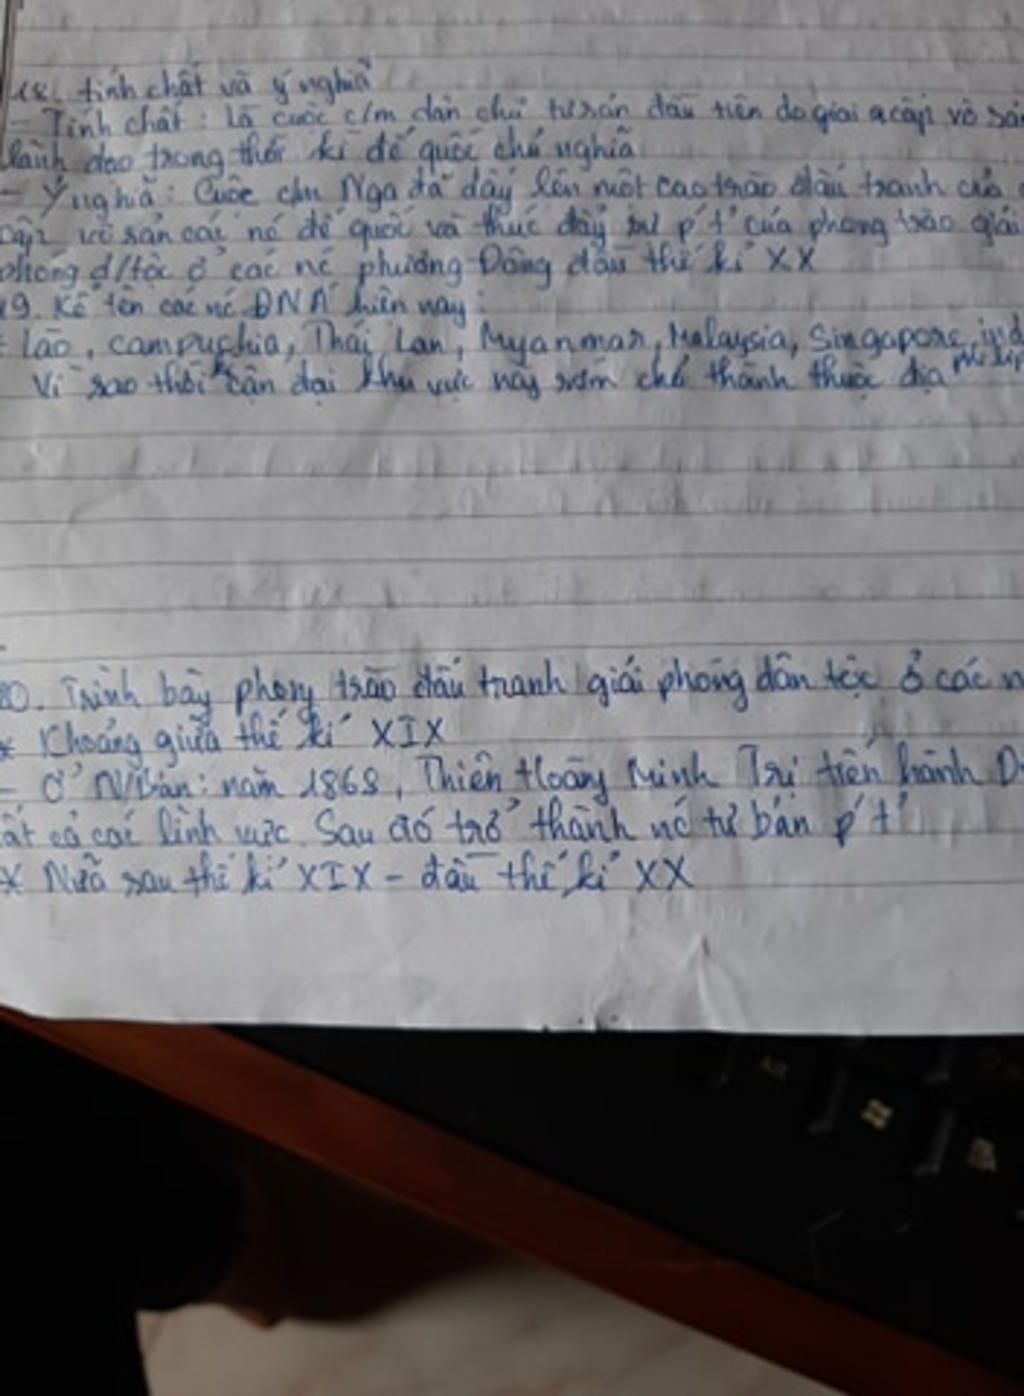 18. tính chất và ý nghĩa
- Tính chất: Là cuộc c/m dân chủ tư sản đầu tiên do giai cấp vô sản
lãnh đạo trong thời kì đế quốc chủ nghĩa
- Ý nghĩa: Cuộc cm Nga đã dấy lên một cao trào đấu tranh của
cấp vô sản các nc đế quốc và thúc đẩy sự p't' của phong trào giải
phóng d/tộc ở các nc phương Đông đầu thế kỉ XX
19. Kể tên các nc ĐNÁ hiện nay:
: Lào, campuchia, Thái Lan, Myanmar, Malaysia, Singapore, ind
Vì sao thời kì cận đại khu vực này sớm chở thành thuộc địa
20. Trình bày phong trào đấu tranh giải phóng dân tộc ở các n
* Khoảng giữa thế kỉ XIX
- Ở N/Bản: năm 1868, Thiên Hoàng Minh Trị tiến hành D
ất cả các lĩnh vực. Sau đó trở thành nc tư bản p't'
* Nửa sau thế kỉ XIX - đầu thế kỉ XX